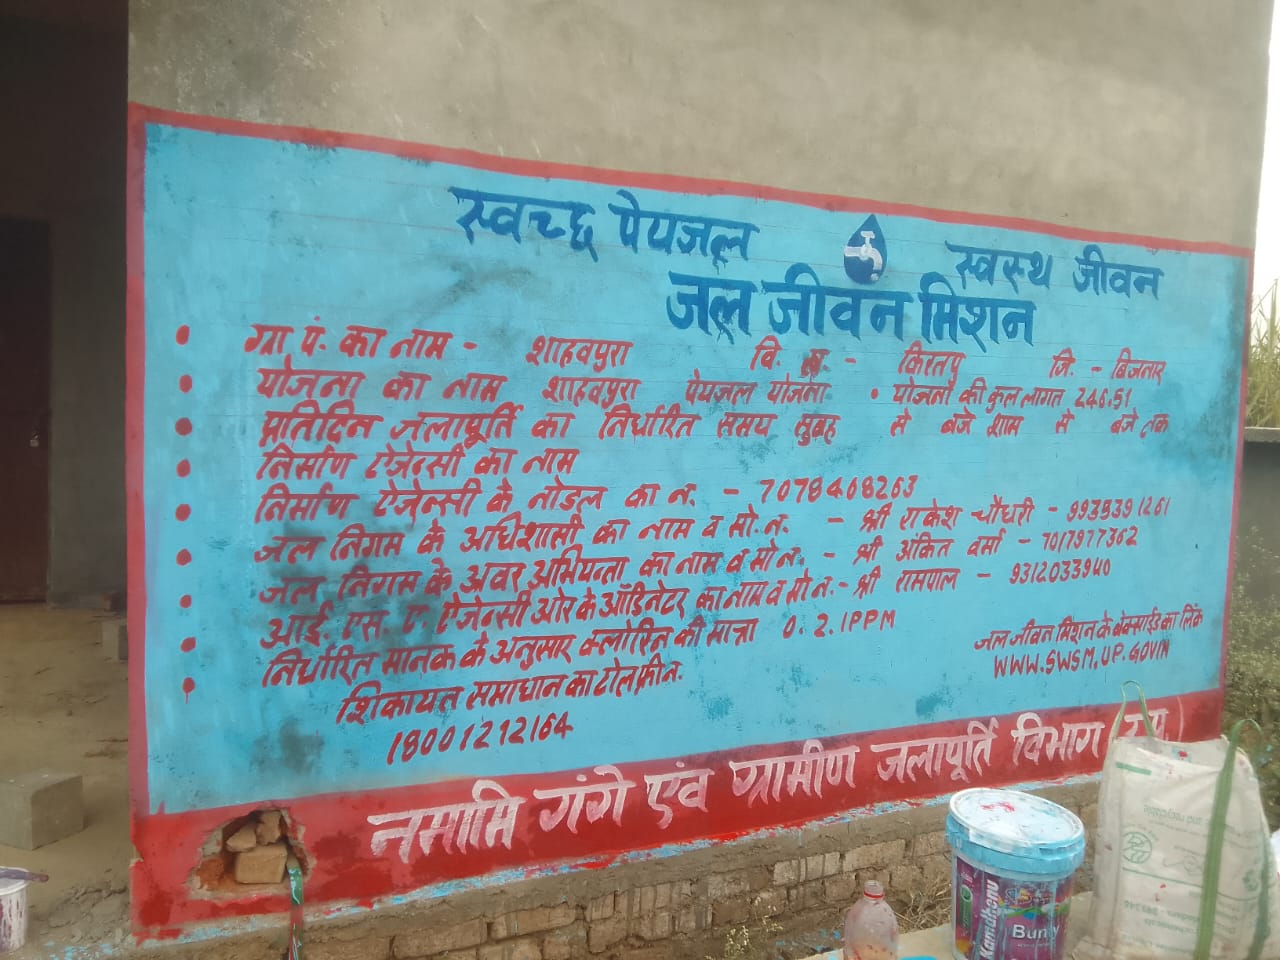 स्वच्छ पेयजल स्वस्थ जीवन
जल जीवन मिशन
ग्रा पं. का नाम - शाहवपुरा वि. ख. - किरतपु जि. - बिजनार
योजना का नाम शाहवपुरा पेयजल योजना • योजना की कुल लागत 246.51
प्रतिदिन जलापूर्ति का निर्धारित समय सुबह से बजे शाम से बजे तक
निर्माण ऐजेन्सी का नाम
निर्माण ऐजेन्सी के नोडल का न. - 7078408263
जल निगम के अधिशासी का नाम व मो. न. - श्री राकेश चौधरी - 9935391261
जल निगम के अवर अभियन्ता का नाम व मो न. - श्री अंकित वर्मा - 7017977362
आई. एस. ए. ऐजेन्सी ओर के ऑडिनेटर का नाम व मो न. - श्री रामपाल - 9312033940
निर्धारित मानक के अनुसार क्लोरिन की मात्रा 0. 2. 1PPM
शिकायत समाधान का टोल फ्री न.
18001212164
जल जीवन मिशन के बेक्साईड का लिंक
WWW.SWSM.UP.GOVIN
नमामि गंगे एंव ग्रामीण जलापूर्ति विभाग
Kamdhenu